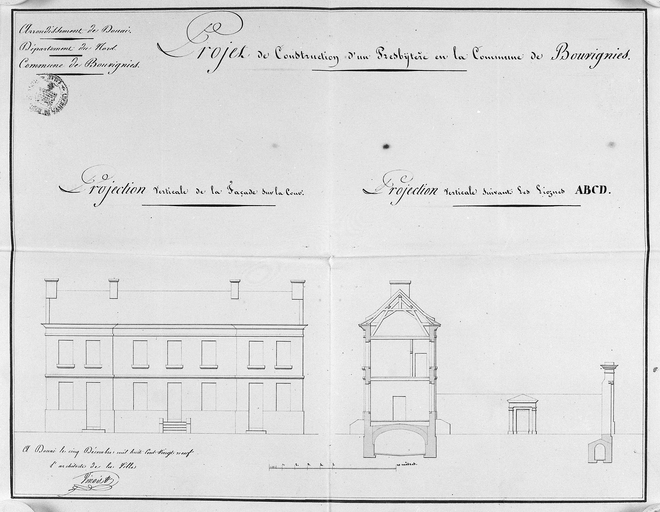 Arrondissement de Douai.
Département du Nord.
Commune de Bouvignies.
Projet de Construction d'un Presbytère en la Commune de Bouvignies.
Projection Verticale de la Façade sur la Cour.
Projection Verticale suivant Les Lignes ABCD.
A Douai le cinq Décembre mil huit Cent Vingt neuf
l'architecte de la Ville